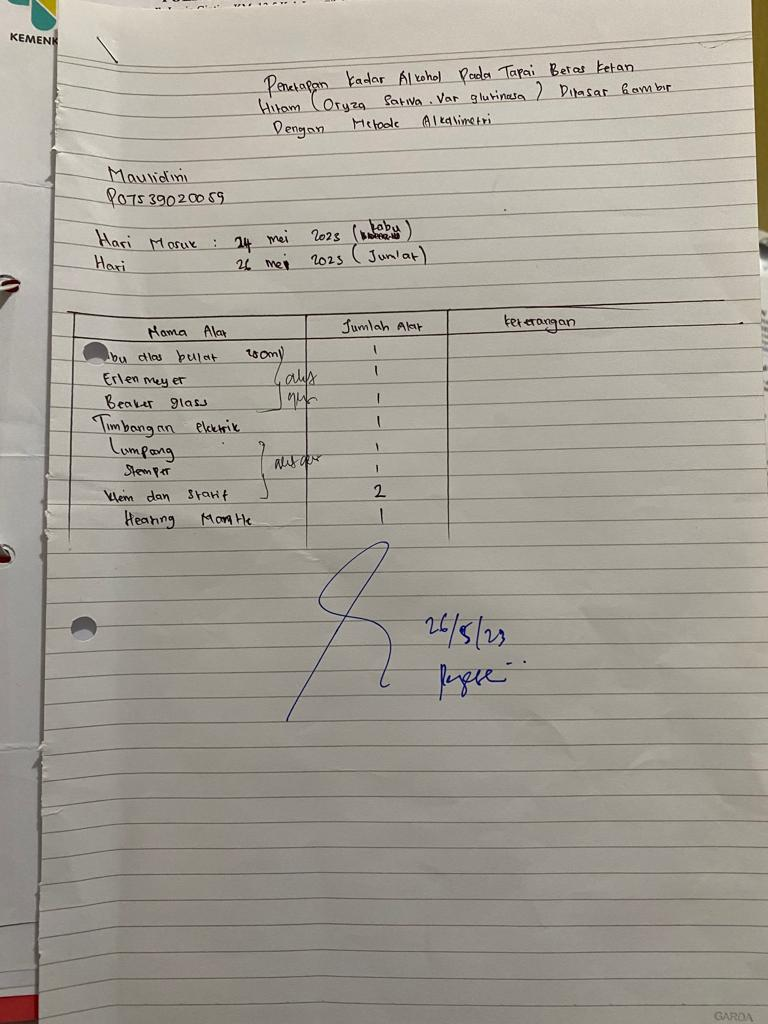 KEMENK
Penetapan Kadar Alkohol Pada Tapai Beras Ketan
Hitam (Oryza Sativa. Var glutinasa) Dipasar Gambir
Dengan Metode Alkalimetri
Maulidini
P07539020059
Hari Masuk : 24 mei 2023 (Rabu)
Hari 26 mei 2023 (Jum'at)
Nama Alat Jumlah Alat Keterangan
bu alas bulat 250ml 1
Erlenmeyer 1
Beaker glass 1
Timbangan elektrik 1
Lumpang 1
Stemper 1
klem dan Statif 2
Heating Mantle 1
26/5/23
GARDA